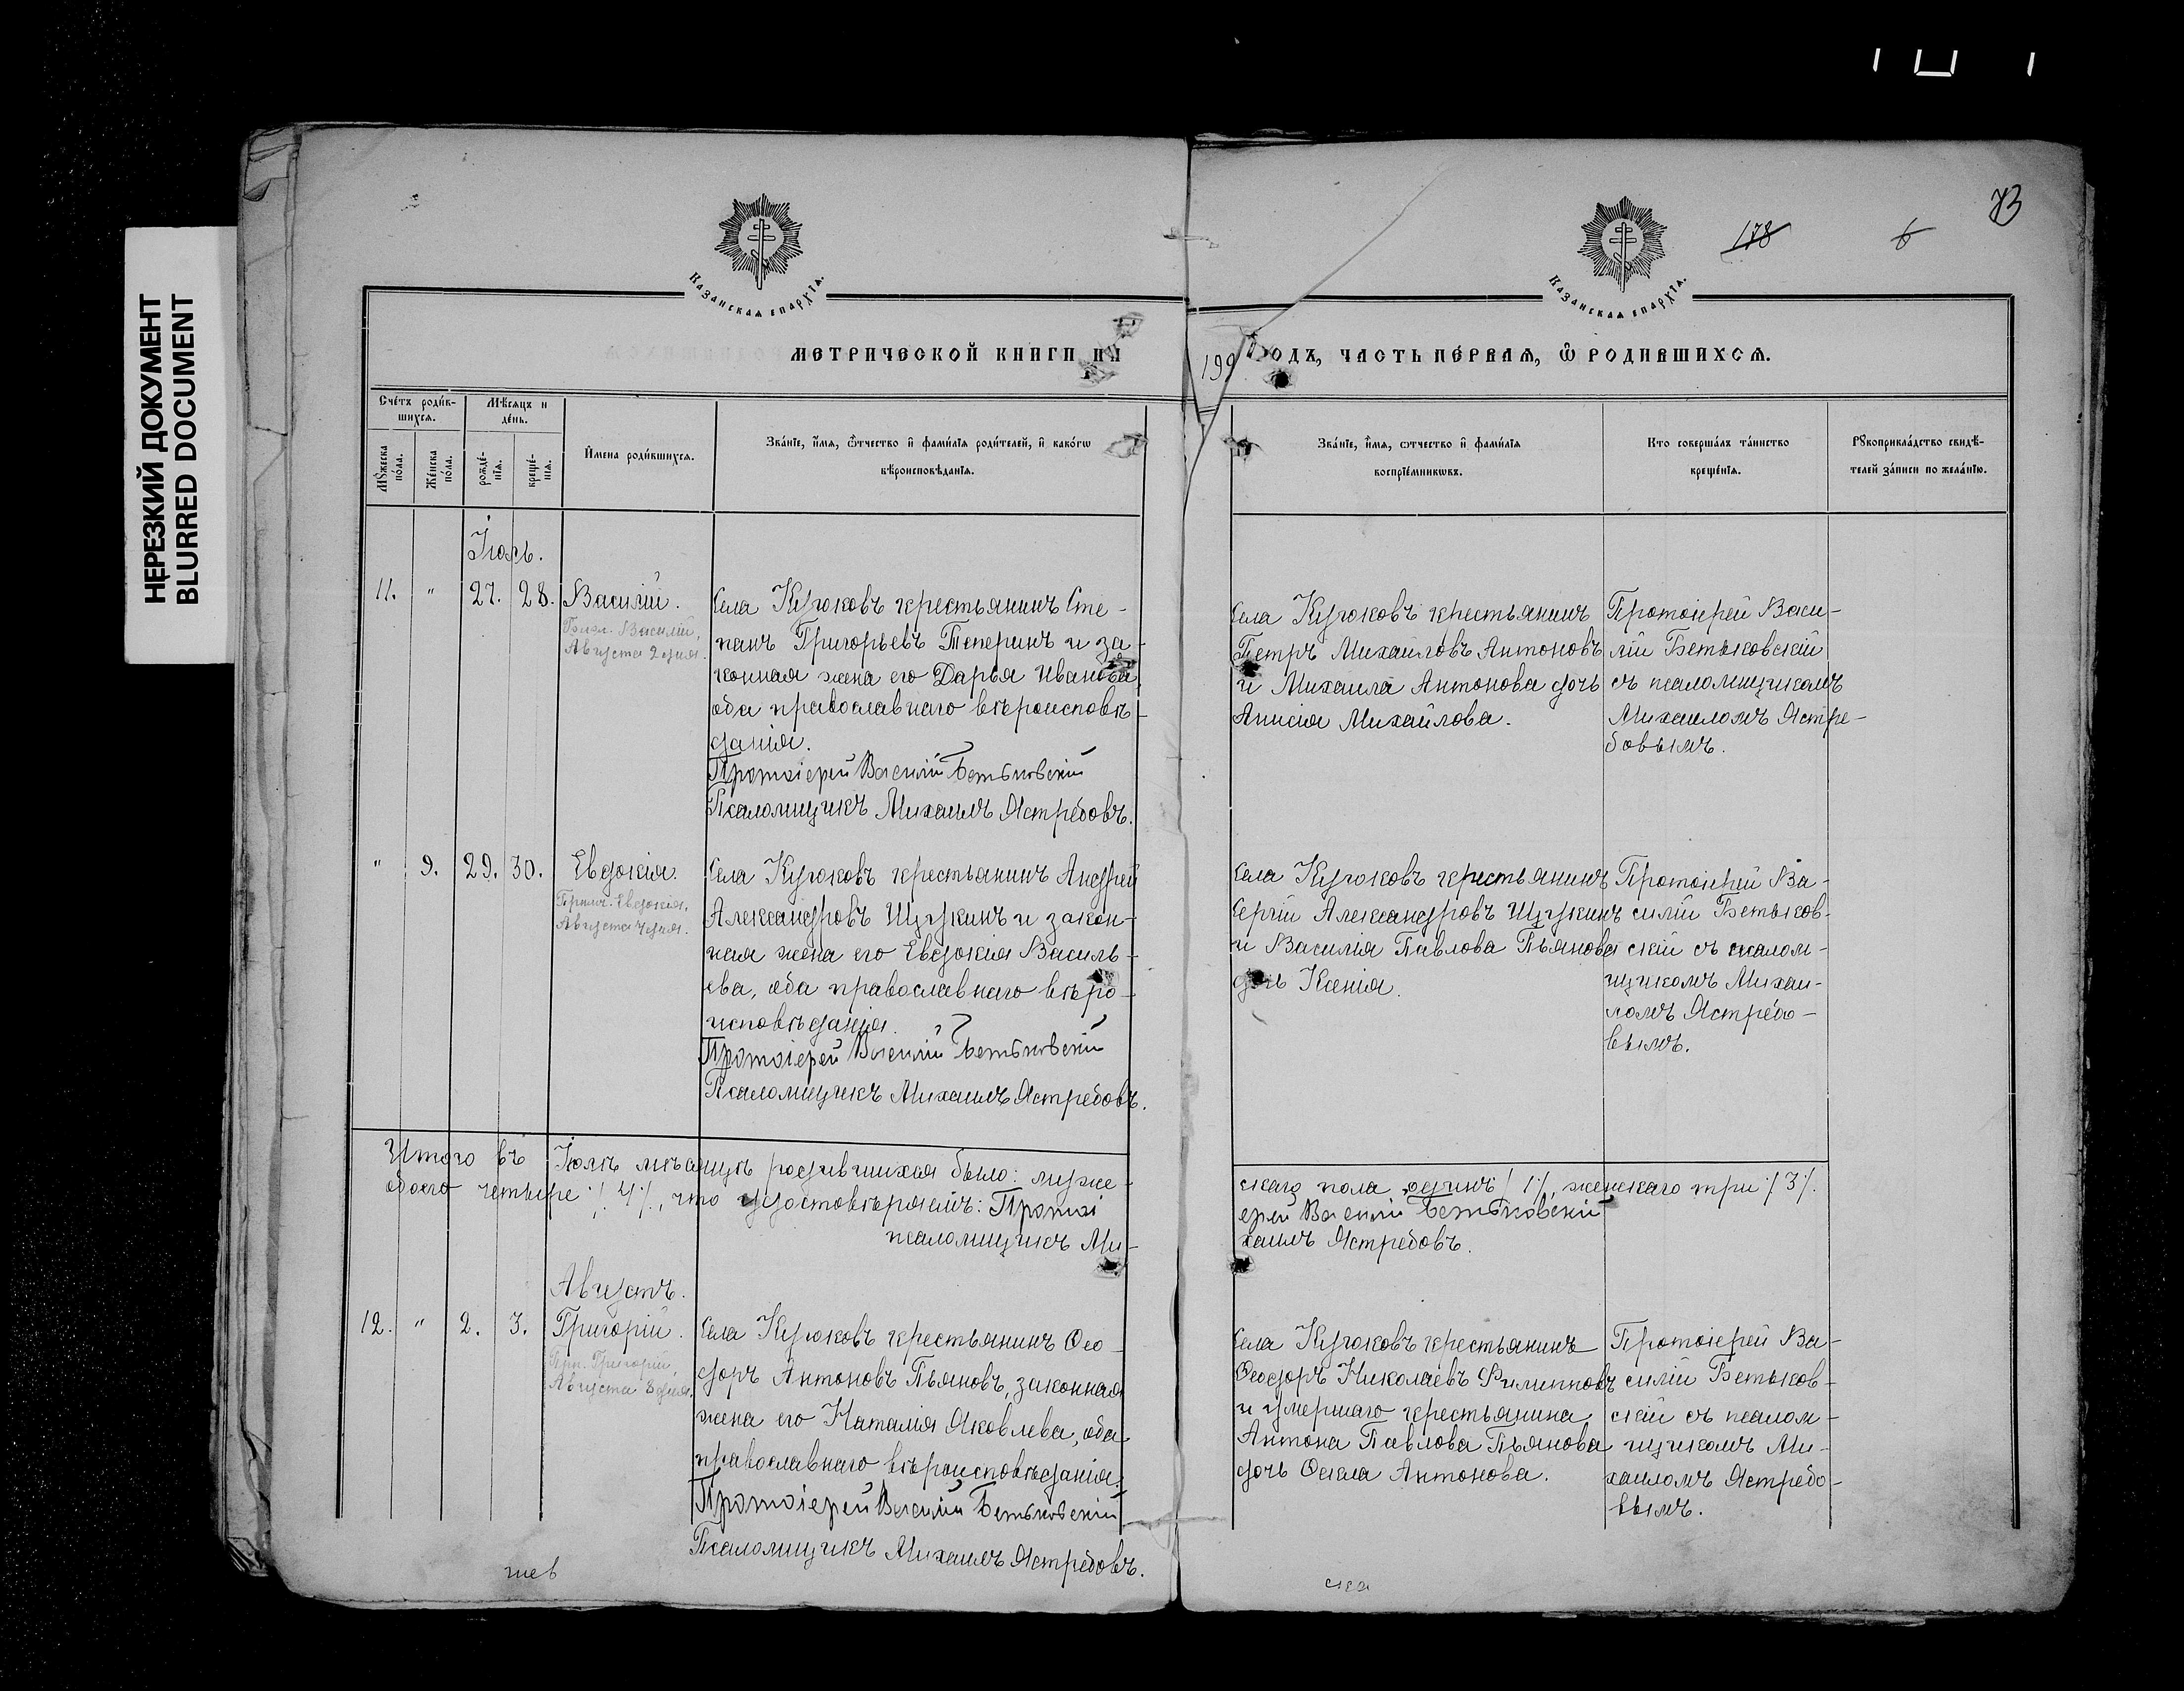 НЕРЕЗКИЙ ДОКУМЕНТ
BLURRED DOCUMENT
73
178
6
Казанская епархїя.
Казанская епархїя.
МЕТРИЧЕСКОЙ КНИГИ НА
199 ГОДЪ, ЧАСТЬ ПЕ́РВАЯ, Ѿ РОДИВШИХСЯ.
Сче́тъ роди́в-
шихся.
Мѣ́сяцъ и
де́нь.
Мꙋ́жеска
по́ла.
Же́нска
по́ла.
рожде́-
нїя.
креще́-
нїя.
И́мена роди́вшихся.
Зва́нїе, и́мя, ѻ҆́тчество и҆ фами́лїя роди́телей, и҆ како́гѡ
вѣроисповѣ́данїя.
Зва́нїе, и́мя, ѻтчество и҆ фами́лїя
воспрїе́мникѡвъ.
Кто соверша́лъ та́инство
креще́нїя.
Рꙋкоприкла́дство свидѣ́-
телей за́писи по жела́нїю.
Іюль.
11. " 27. 28. Василій.
Василій,
Августа 2 дня.
Села Кугюковъ крестьянинъ Сте-
панъ Григорьевъ Теперинъ и за-
конная жена его Дарья Иванова,
оба православнаго вѣроисповѣ-
данія.
Протоіерей Василій Бетьковскій
Псаломщикъ Михаилъ Ястребовъ.
Села Кугюковъ крестьянинъ
Петръ Михаиловъ Антоновъ
и Михаила Антонова дочь
Анисія Михайлова.
Протоіерей Васи-
лій Бетьковскій
съ псаломщикомъ
Михаиломъ Ястре-
бовымъ.
" 9. 29. 30. Евдокія.
Евдокія,
Августа 4 дня.
Села Кугюковъ крестьянинъ Андрей
Александровъ Щукинъ и закон-
ная жена его Евдокія Василь-
ева, оба православнаго вѣро-
исповѣданія.
Протоіерей Василій Бетьковскій
Псаломщикъ Михаилъ Ястребовъ.
Села Кугюковъ крестьянинъ
Сергій Александровъ Щукинъ
и Василія Павлова Пьянова
дочь Ксенія.
Протоіерей Ва-
силій Бетьков-
скій съ псалом-
щикомъ Михаи-
ломъ Ястребо-
вымъ.
Итого въ Іюлѣ мѣсяцѣ родившихся было: муже-
скаго пола одинъ /1/, женскаго три /3/.
обоего четыре /4/, что удостовѣряемъ: Протоі
ерей Василій Бетьковскій
псаломщикъ Ми-
хаилъ Ястребовъ.
Августъ.
12. " 2. 3. Григорій.
Григорій,
Августа 8 дня.
Села Кугюковъ крестьянинъ Ѳео-
доръ Антоновъ Пьяновъ, законная
жена его Наталія Яковлева, оба
православнаго вѣроисповѣданія.
Протоіерей Василій Бетьковскій
Псаломщикъ Михаилъ Ястребовъ.
Села Кугюковъ крестьянинъ
Ѳеодоръ Николаевъ Филипповъ
и умершаго крестьянина
Антона Павлова Пьянова
дочь Ѳекла Антонова.
Протоіерей Ва-
силій Бетьков-
скій съ псалом-
щикомъ Ми-
хаиломъ Ястребо-
вымъ.